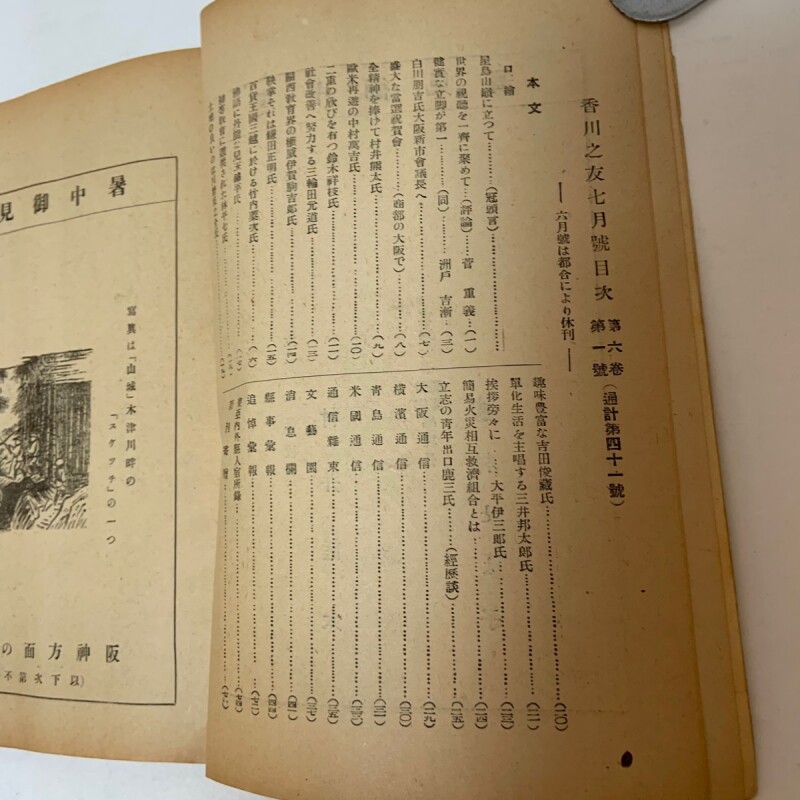 香川之友七月號目次
第六卷
第一號
(通計第四十一號)
── 六月號は都合により休刊 ──
口繪
本文
屋島山巓に立つて…………(冠頭言)…………
世界の視聽を一齊に聚めて…(評論)……菅 重義…(一)
健實な立脚が第一…………(同)………洲戸 吉漸…(三)
白川朋吉氏大阪新市會議長へ…………(七)
盛大な當選祝賀會…………(商都の大阪で)…………(八)
全精神を捧げて村井熊太氏…………(九)
歐米再遊の中村萬吉氏…………(一〇)
二重の欣びを有つ鈴木祥枝氏…………(一一)
社會改善へ努力する三輪田元道氏…………(一三)
關西教育界の權威伊賀駒吉郎氏…………(一四)
執掌それは鎌田正明氏…………(一五)
百貨王國三越に於ける竹內憙次氏…………(一六)
趣味豐富な吉田俊藏氏…………(二〇)
單化生活を主唱する三井邦太郎氏…………(二一)
挨拶旁々に……大平伊三郎氏…………(二三)
簡易火災相互救濟組合とは…………(二四)
立志の靑年出口鹿三氏……(經歷談)…………(二五)
大阪通信…………(二九)
橫濱通信…………(三〇)
靑島通信…………(三一)
米國通信…………(三三)
通信雜束…………(三五)
文藝園…………(三七)
消息欄…………(四一)
慶事彙報…………(四四)
追悼彙報…………(七二)
暑中御見
寫眞は「山城」木津川畔の
「スケッチ」の一つ
阪神方面の
(以下次第不